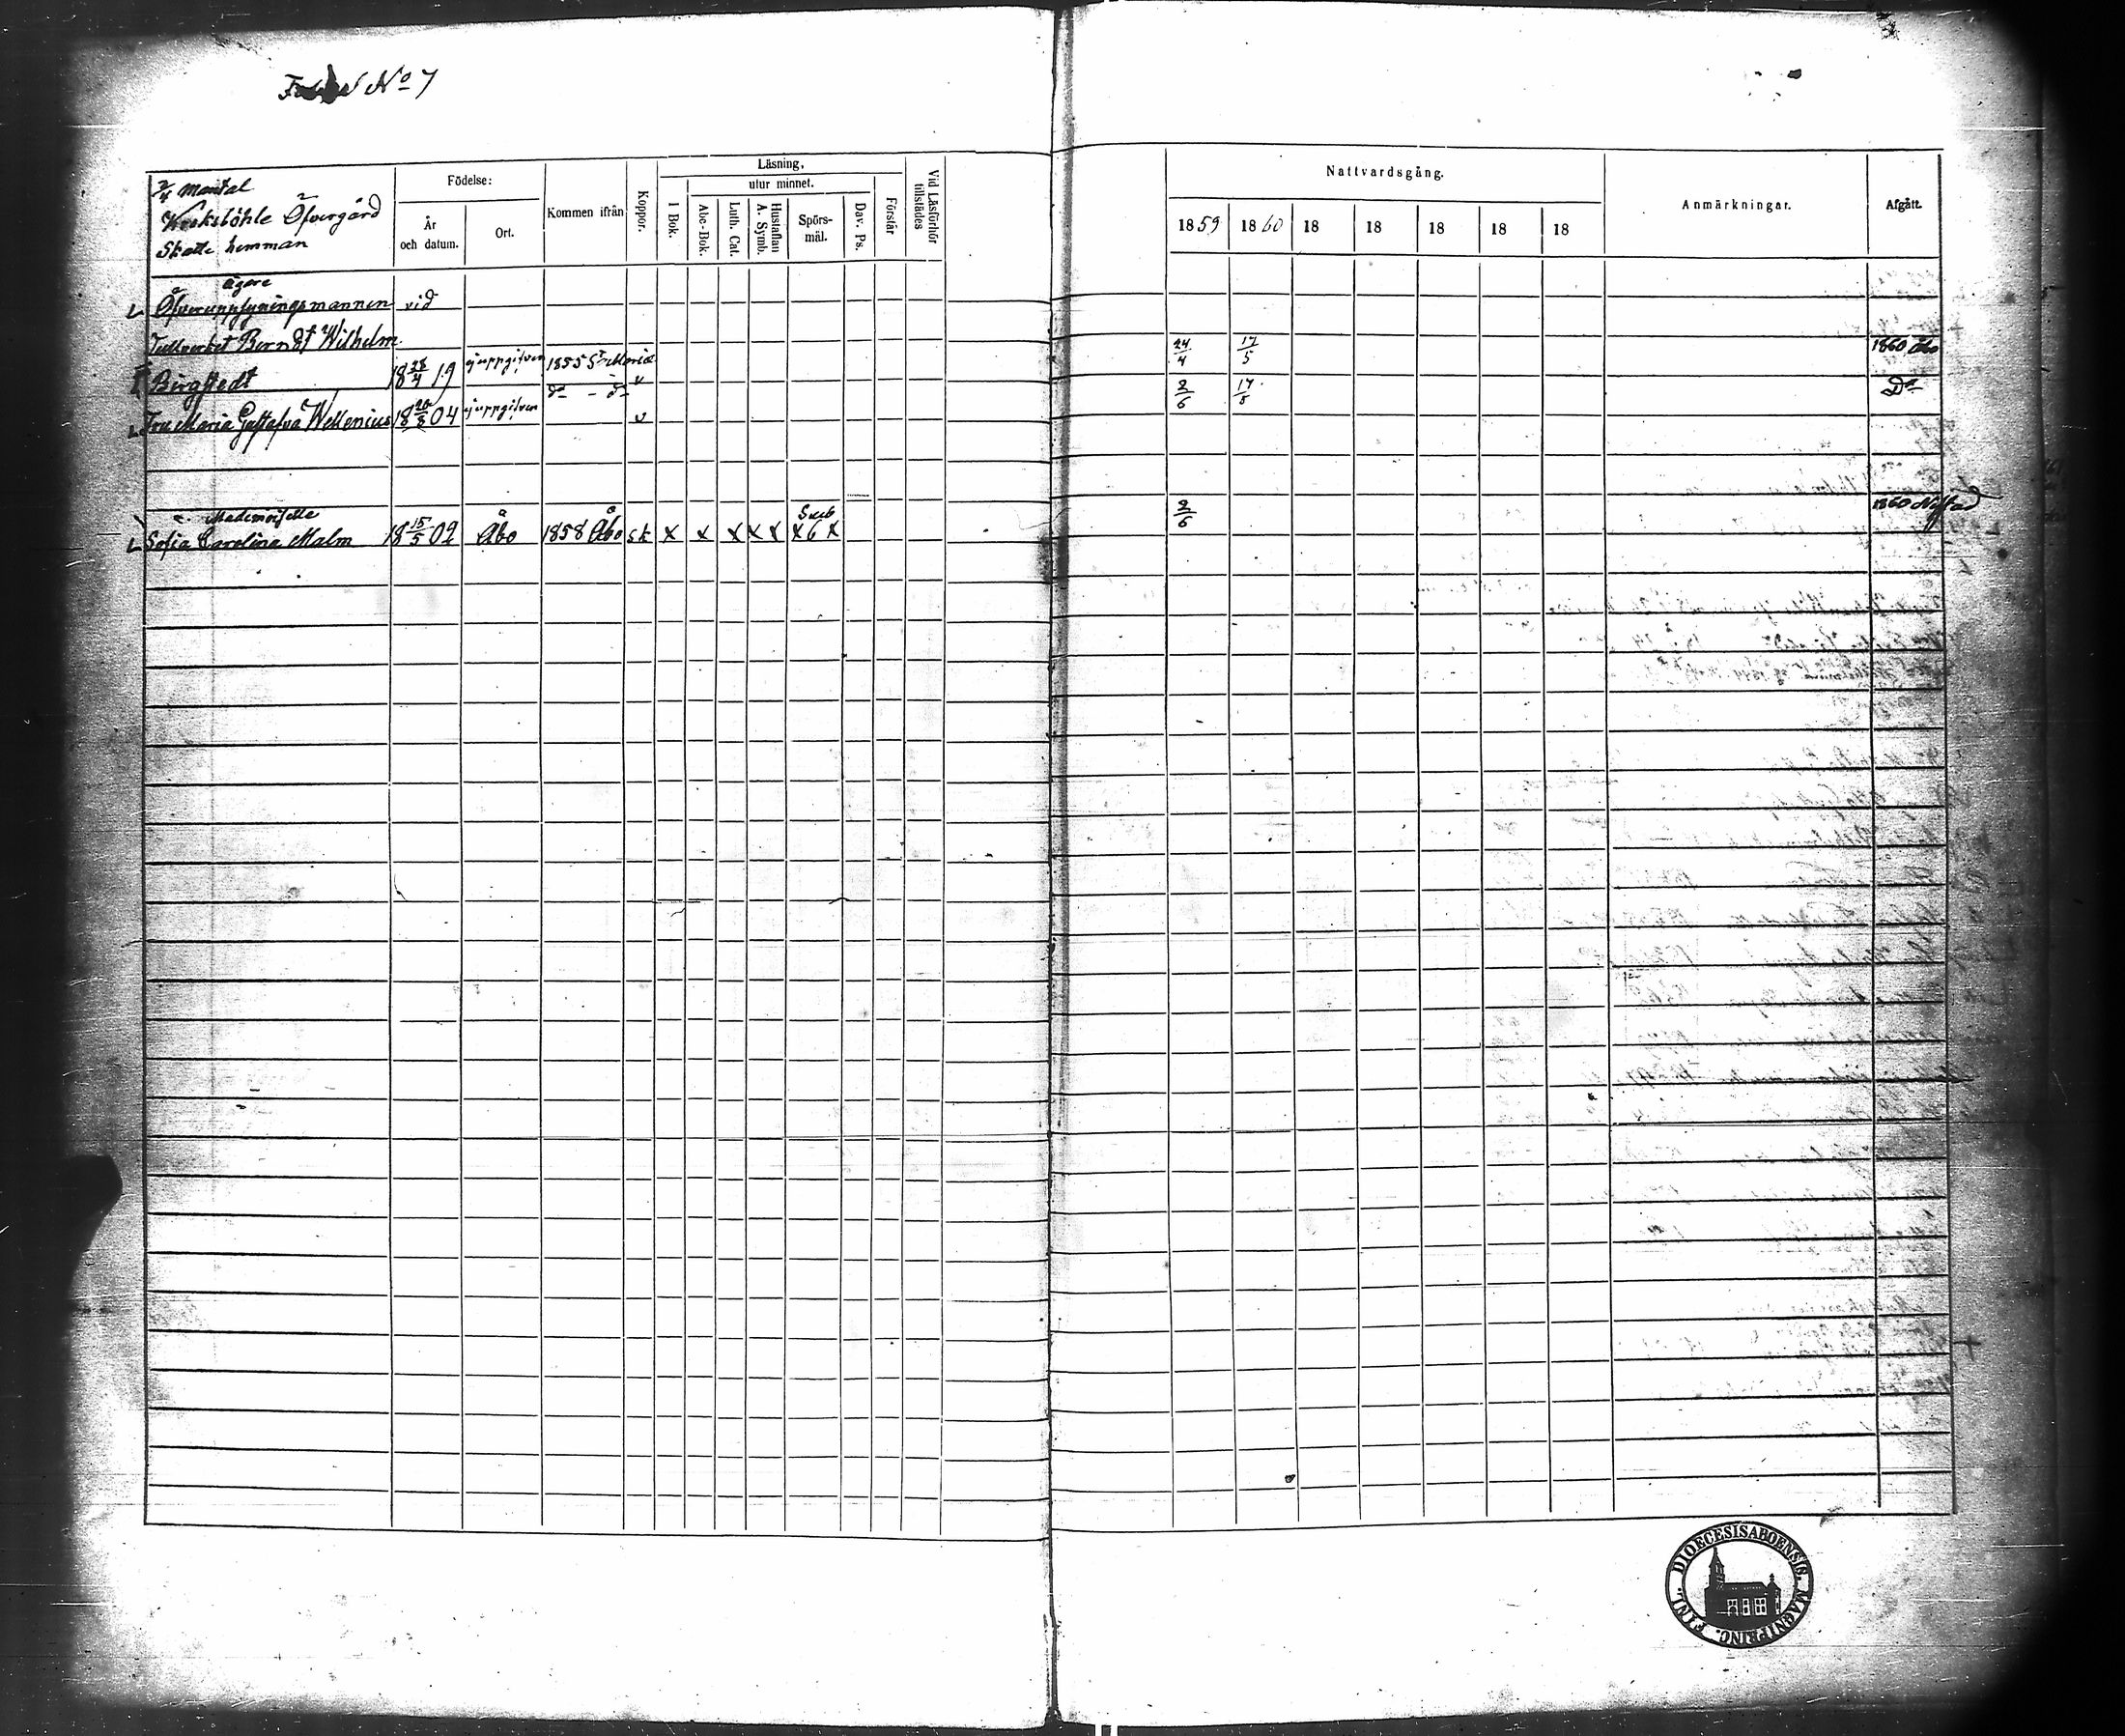 No 7
3/4 Mantal
Öfvergård
Skatte hemman
Födelse:
År och datum.
Ort.
Kommen ifrån
Koppor.
Läsning.
utur minnet.
I Bok.
Abc-Bok.
Luth. Cat.
Hustaflan A. Symb.
Spörs-mål.
Dav. Ps.
Förstår
Vid Läsförhör tillstädes
Nattvardsgång.
1859 1860 18 18 18 18 18
Anmärkningar.
Afgått.
ägare
Öfveruppsyningsmannen vid
Tullverket Berndt Wilhelm 24/4 17/5 1860 Åbo
Birgstedt 18 28/4 19 ej uppgifven 1855 St Maria v 2/6 17/5 Do
Fru Maria Gustafva Wellenius 18 20/8 04 ej uppgifven do - do v
Mademoiselle Sub 2/6 1860 Nystad
Sofia Carolina Malm 18 15/5 02 Åbo 1858 Åbo sk x x x x x x 6 x
DIOECESIS ABOENSIS. MAGNI PRINC. FINL.